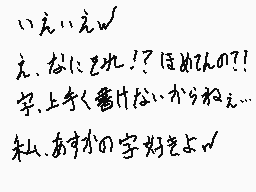 いえいえw
え、なにそれ!?ほめてんの?!
字、上手く書けないからねぇ…
私、あすかの字好きよw